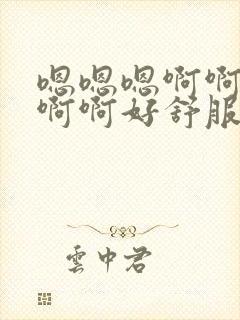 嗯嗯嗯啊啊
啊啊好舒服
雲中君